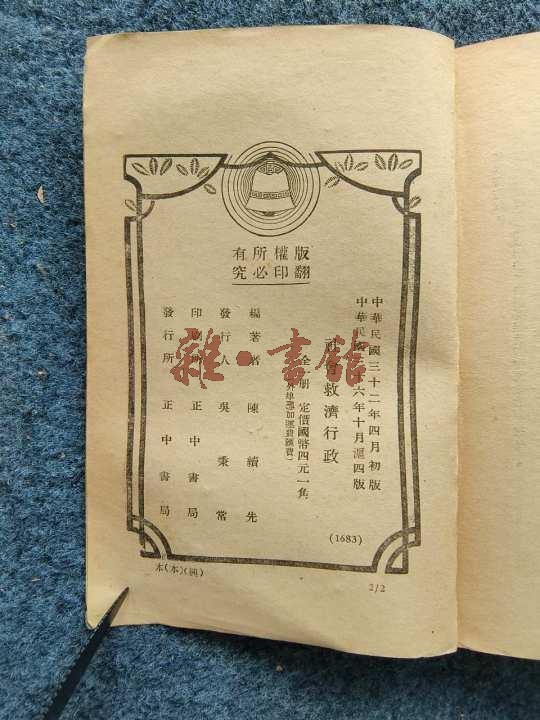 版權所有
翻印必究
中華民國三十二年四月初版
中華民國 十六年十月滬四版
社會救濟行政
全一册 定價國幣四元一角
(外埠酌加運費匯費)
編著者 陳續先
發行人 吳秉常
印刷所 正中書局
發行所 正中書局
(1683)
本(本)(純)
2/2
雜·書館